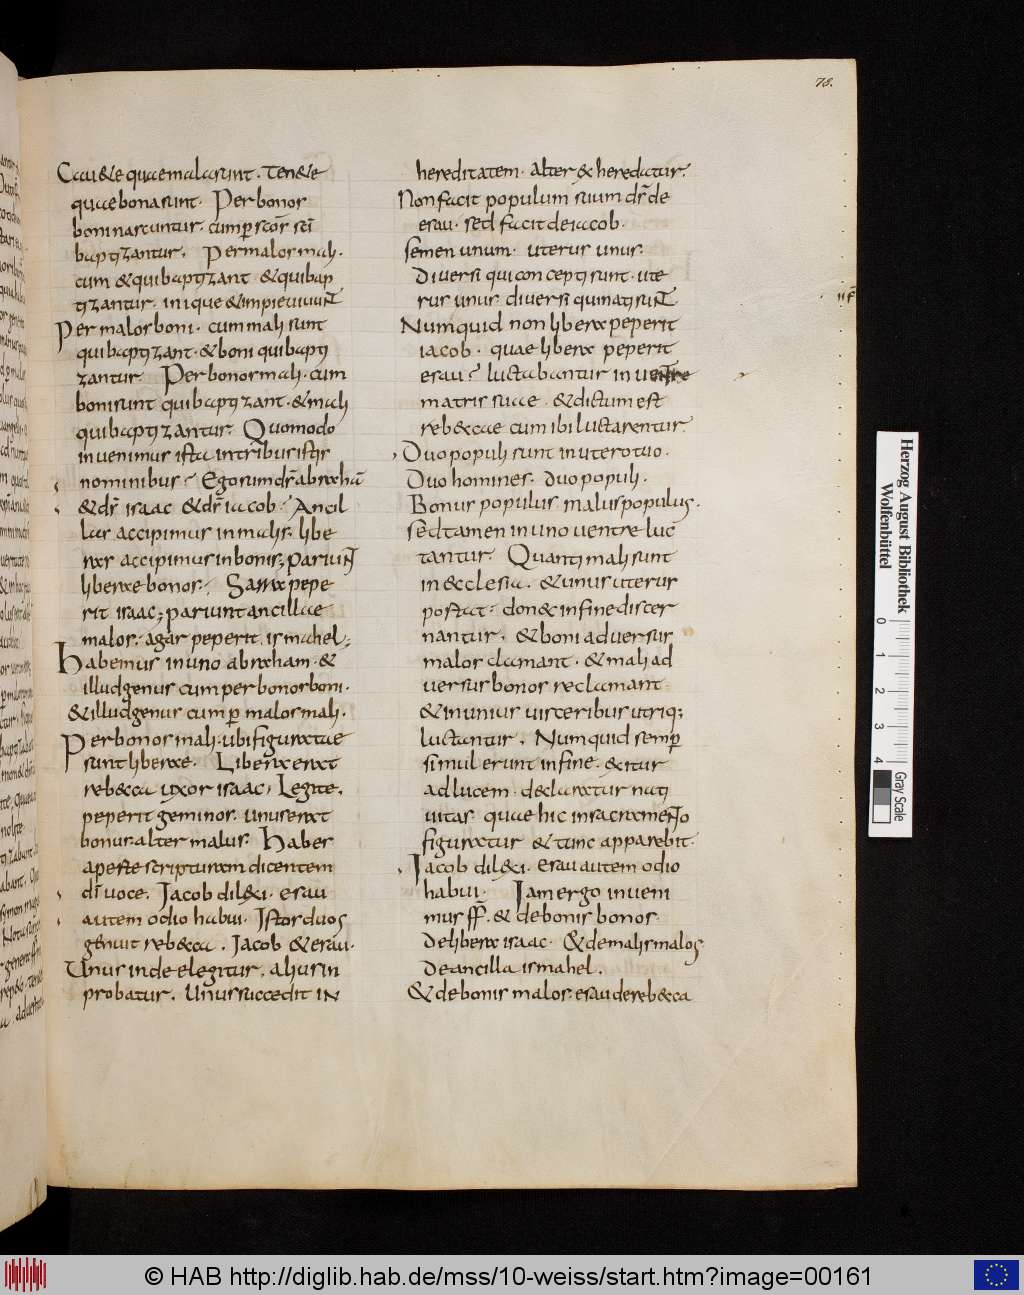 78.
Cauete quae mala sunt. Tenete
quae bona sunt. Per bonos
boni nascuntur. cum per scōs scī
baptizantur. Per malos mali.
cum et qui baptizant et qui bap
tizantur. inique et impie uiuuNT
Per malos boni. cum mali sunt
qui baptizant. et boni qui bapti
zantur. Per bonos mali. cum
boni sunt qui baptizant. et mali
qui baptizantur. Quomodo
inuenimus ista in tribus istis
nominibus? Ego sum ds̄ abrahā
et ds̄ isaac et ds̄ iacob? Ancil
las accipimus in malis. libe
ras accipimus in bonis; pariunt
liberae bonos. Sarra pepe
rit isaac; pariunt ancillae
malos. agar peperit ismahel;
Habemus in uno abraham. et
illud genus cum per bonos boni.
et illud genus cum ꝑ malos mali.
Per bonos mali. ubi figuratae
sunt liberae. Libera erat
rebecca uxor isaac, Legite.
peperit geminos. unus erat
bonus. alter malus. Habes
aperte scripturam dicentem
dī uoce. Jacob dilexi. esau
autem odio habui. Istos duos
genuit rebecca. Jacob et esau.
Unus inde elegitur. alius in
probatur. Unus succedit IN
hereditatem. alter exheredatur.
Non facit populum suum ds̄ de
esau. sed facit de iacob.
semen unum. uterus unus.
diuersi qui concepti sunt. ute
rus unus. diuersi qui nati suNT
Numquid non libera peperit
iacob. quae libera peperit
esau? luctabantur in uentre
matris suae. et dictum est
rebeccae cum ibi luctarentur.
Duo populi sunt in utero tuo.
Duo homines. duo populi.
Bonus populus. malus populus.
sed tamen in uno uentre luc
tantur. Quanti mali sunt
in ecclesia. et unus uterus
postat. donec in fine discer
nantur. et boni aduersus
malos clamant. et mali ad
uersus bonos reclamant
et in unius uisceribus utriq;
luctantur. Numquid semꝑ
simul erunt in fine. exitur
ad lucem. declaratur nati
uitas. quae hic in sacramento
figuratur et tunc apparebit.
Jacob dilexi. esau autem odio
habui. Jam ergo inueni
mus ff̄. et de bonis bonos.
De libera isaac. Et de malis malos
De ancilla ismahel.
Et de bonis malos. esau de rebecca
Herzog August Bibliothek
Wolfenbüttel
0 1 2 3 4
Gray Scale
© HAB http://diglib.hab.de/mss/10-weiss/start.htm?image=00161